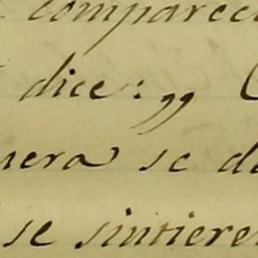 comparec
dice: „ C
nera se d
se sintiere